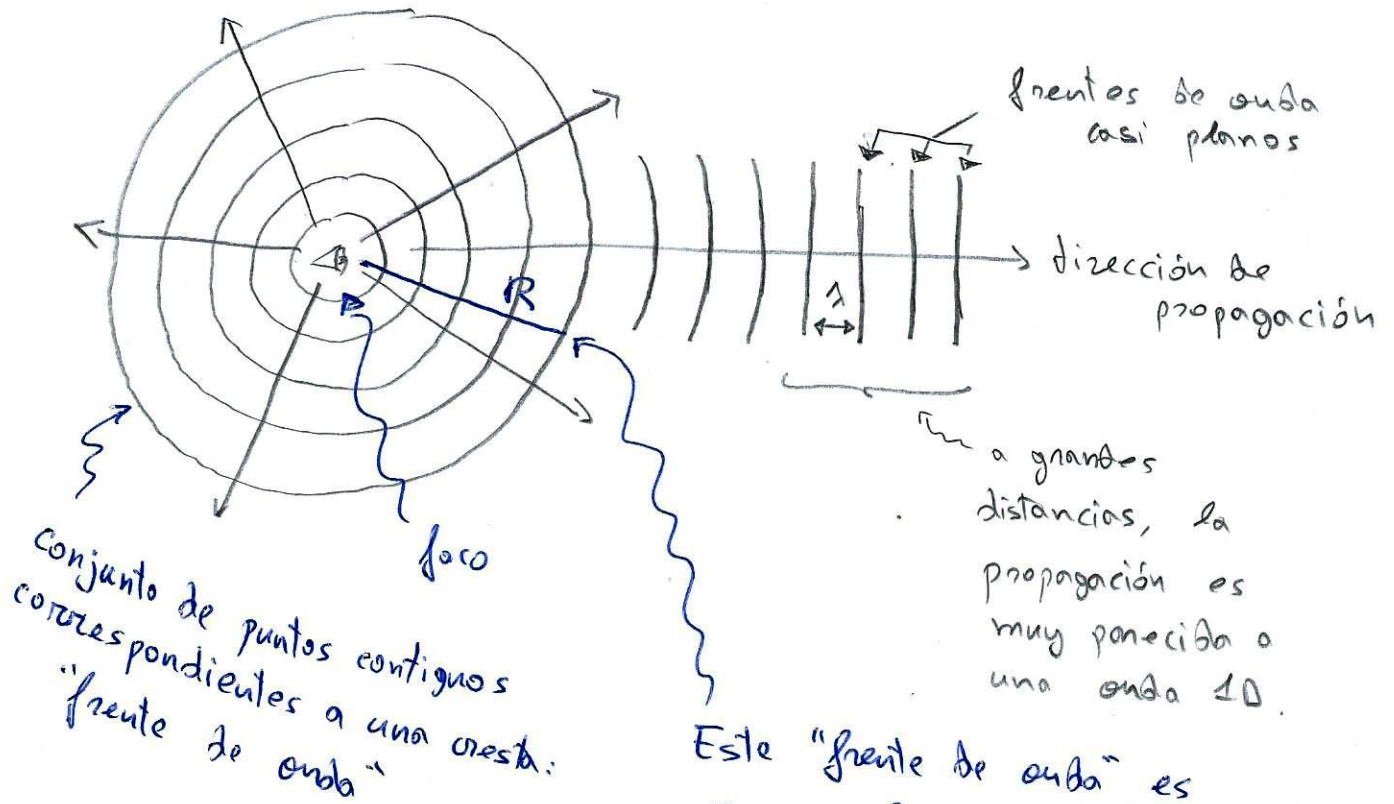 frentes de onda
casi planos
dirección de
propagación
R
λ
a grandes
distancias, la
propagación es
muy parecida a
una onda 1D.
foco
conjunto de puntos contiguos
correspondientes a una cresta:
"frente de onda"
Este "frente de onda" es